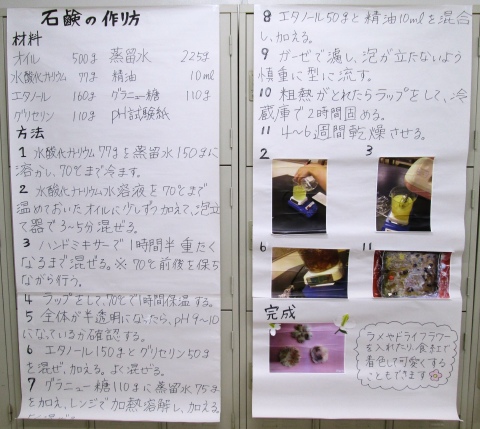 石鹸の作り方
材料
オイル 500g 蒸留水 225g
水酸化ナトリウム 77g 精油 10ml
エタノール 160g グラニュー糖 110g
グリセリン 110g pH試験紙
方法
1 水酸化ナトリウム77gを蒸留水150gに
溶かし、70℃まで冷ます。
2 水酸化ナトリウム水溶液を70℃まで
温めておいたオイルに少しずつ加えて、泡立
て器で3~5分混ぜる。
3 ハンドミキサーで1時間半重たく
なるまで混ぜる。※70℃前後を保ち
ながら行う。
4 ラップをして、70℃で1時間保温する。
5 全体が半透明になったら、pH9~10
になっているか確認する。
6 エタノール150gとグリセリン50g
を混ぜ、加える。よく混ぜる。
7 グラニュー糖110gに蒸留水75g
を加え、レンジで加熱溶解し、加える。
8 エタノール50gと精油10mlを混合
し、加える。
9 ガーゼで濾し、泡が立たないよう
慎重に型に流す。
10 粗熱がとれたらラップをして、冷
蔵庫で2時間固める。
11 4~6週間乾燥させる。
2 3
6 11
完成
ラメやドライフラワー
を入れたり、食紅で
着色して可愛くする
こともできます